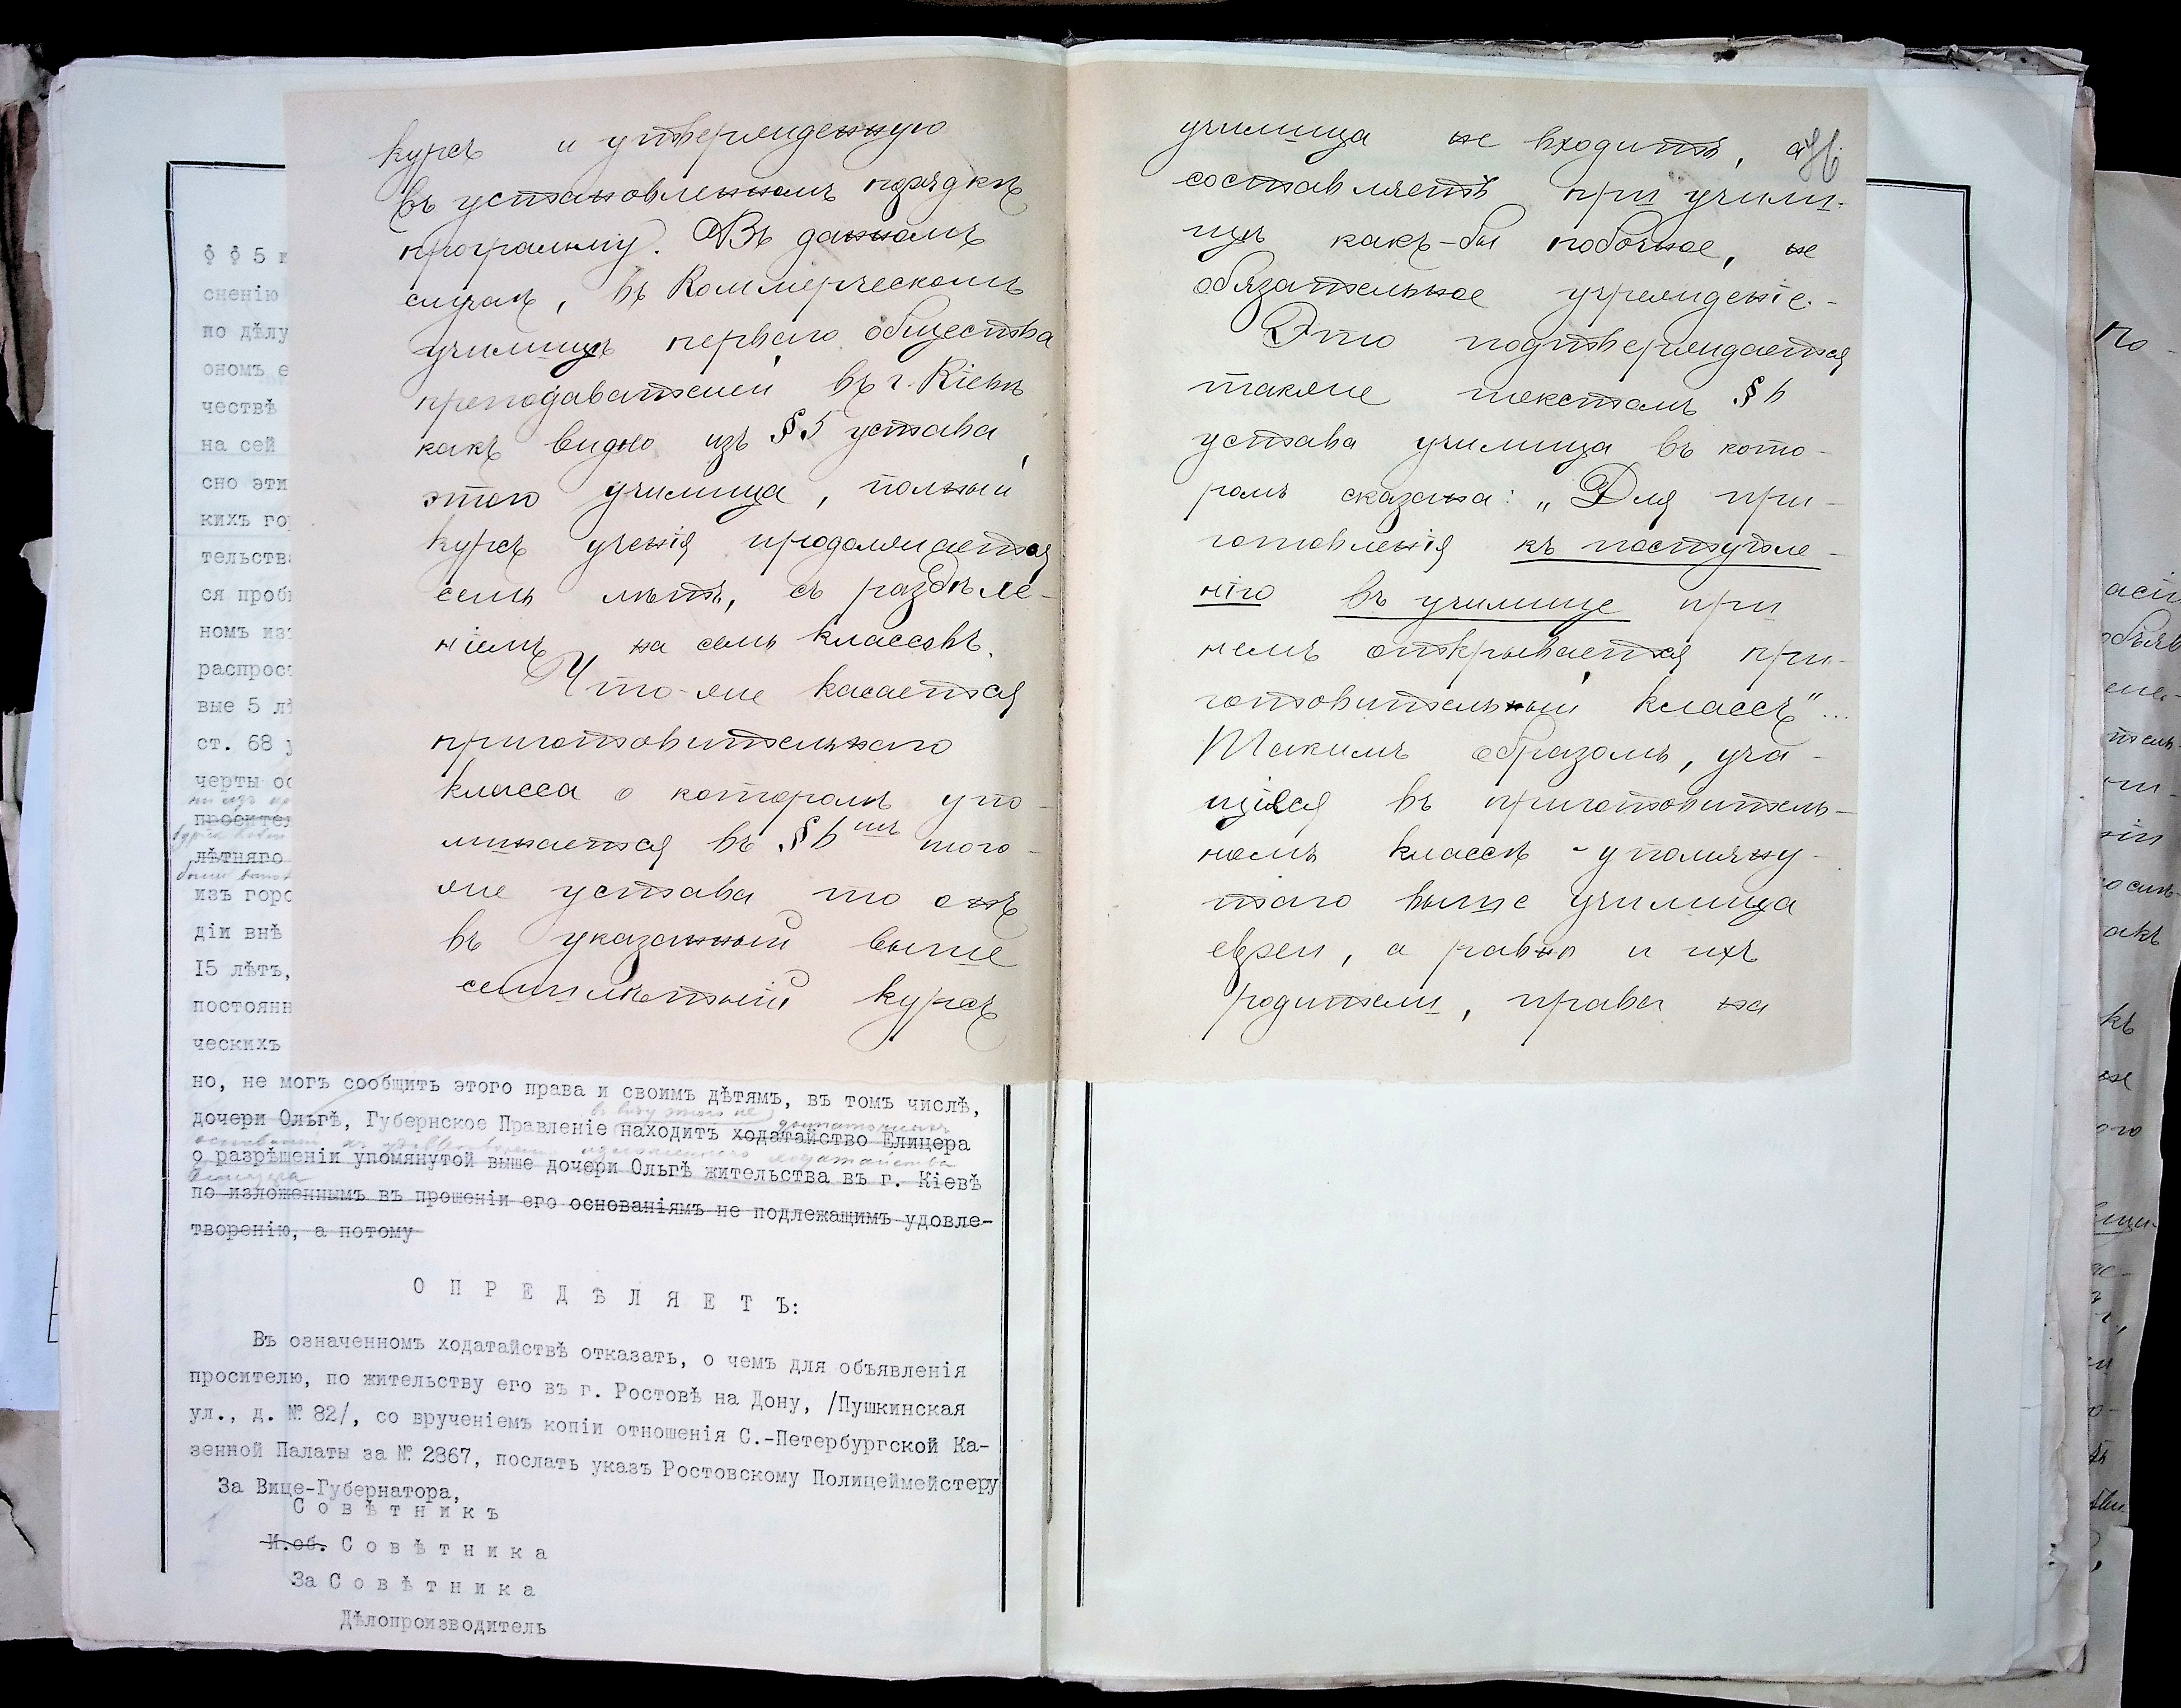 курсъ и утвержденную
въ установленномъ порядкѣ
программу. Въ данномъ
случаѣ, въ Коммерческомъ
училищѣ перваго общества
преподавателей въ г. Кіевѣ
какъ видно изъ § 5 устава
этого училища, полный
курсъ ученія продолжается
семь лѣтъ, съ раздѣле-
ніемъ на семь классовъ.
Что-же касается
приготовительнаго
класса о которомъ упо-
минается въ § 6 томъ того-
же устава то онъ
въ указанный выше
семилѣтній курсъ
училища не входитъ, а
составляетъ при учили-
щѣ какъ-бы побочное, не
обязательное учрежденіе.-
Это подтверждается
также текстомъ § 6
устава училища въ кото-
ромъ сказано: „Для при-
готовленія къ поступле-
нію въ училище при
немъ открывается при-
готовительный классъ"...
Такимъ образомъ, уча-
щіеся въ приготовитель-
номъ классѣ упомяну-
таго выше училища
евреи, а равно и ихъ
родители, права на
§ § 5 и
сненію
по дѣлу
ономъ е
чествѣ
на сей
сно эти
кихъ го
тельств
ся проб
номъ из
распрос
вые 5 л
ст. 68 у
черты ос
просител
лѣтняго
изъ горо
діи внѣ
15 лѣтъ,
постоянн
ческихъ
но, не могъ сообщить этого права и своимъ дѣтямъ, въ томъ числѣ,
въ виду этого не
дочери Ольгѣ, Губернское Правленіе находитъ ходатайство Елицера
о разрѣшеніи упомянутой выше дочери Ольгѣ жительства въ г. Кіевѣ
по изложеннымъ въ прошеніи его основаніямъ не подлежащимъ удовле-
творенію, а потому
О П Р Е Д Ѣ Л Я Е Т Ъ:
Въ означенномъ ходатайствѣ отказать, о чемъ для объявленія
просителю, по жительству его въ г. Ростовѣ на Дону, /Пушкинская
ул., д. № 82/, со врученіемъ копіи отношенія С.-Петербургской Ка-
зенной Палаты за № 2867, послать указъ Ростовскому Полицеймейстеру
За Вице-Губернатора,
Совѣтникъ
И.об. Совѣтника
За Совѣтника
Дѣлопроизводитель